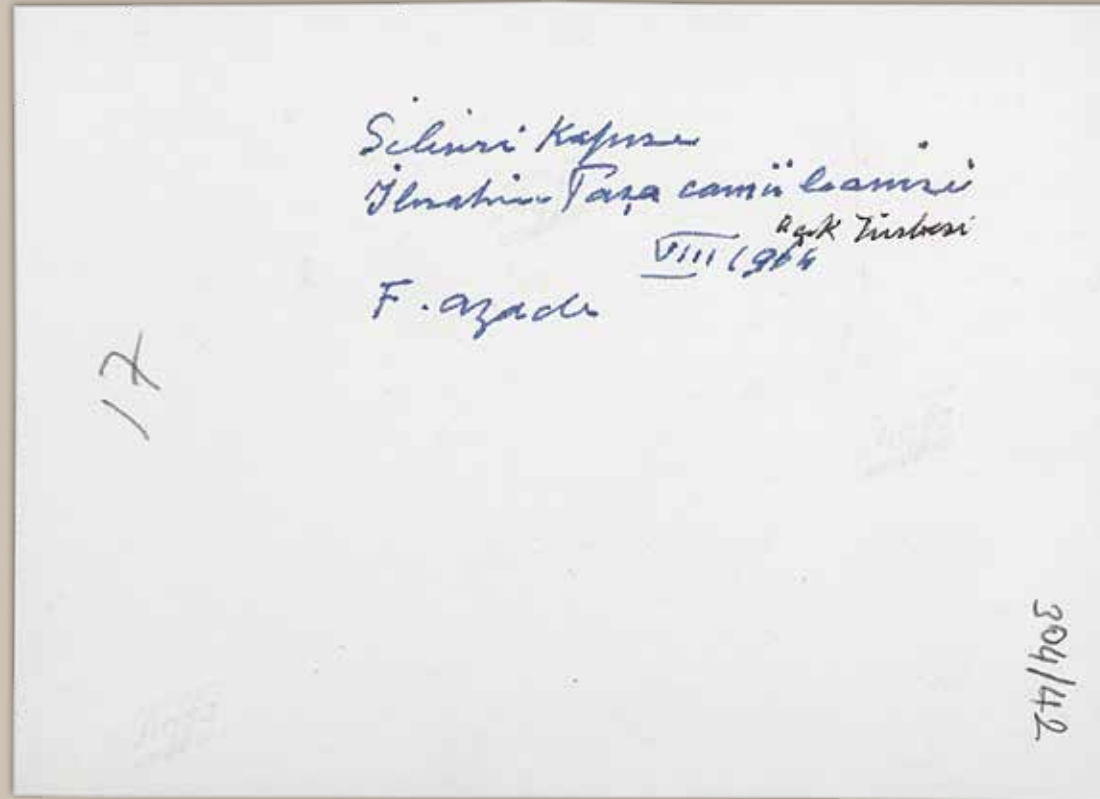 Silivri Kapısı
İbrahim Paşa camii banisi
açık Türbesi
VIII 1964
F. azade
17
304/42